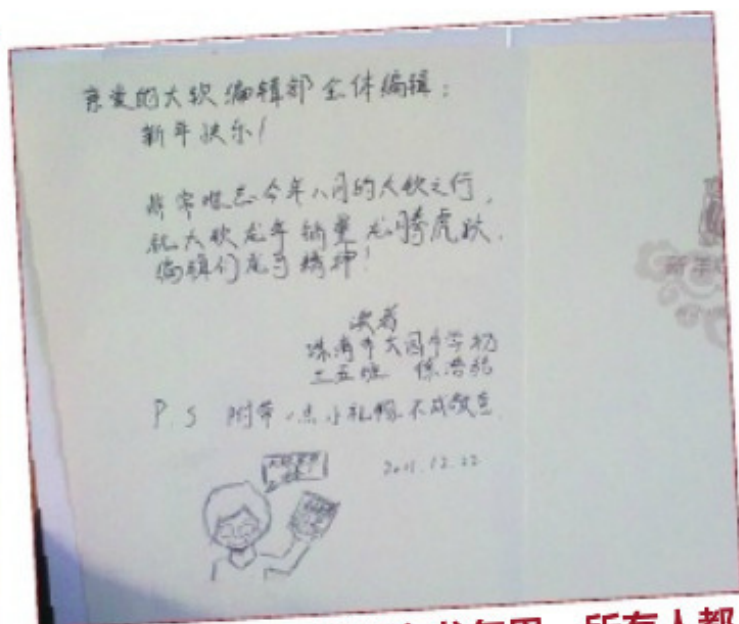 亲爱的大软编辑部全体编辑：
新年快乐！
非常难忘今年八月的大软之行，
祝大软龙年销量龙腾虎跃，
编辑们龙马精神！
读者
珠海市文园中学初
二五班 陈浩
P.S 附带一点小礼物，不成敬意
2011.12.22
所有人都